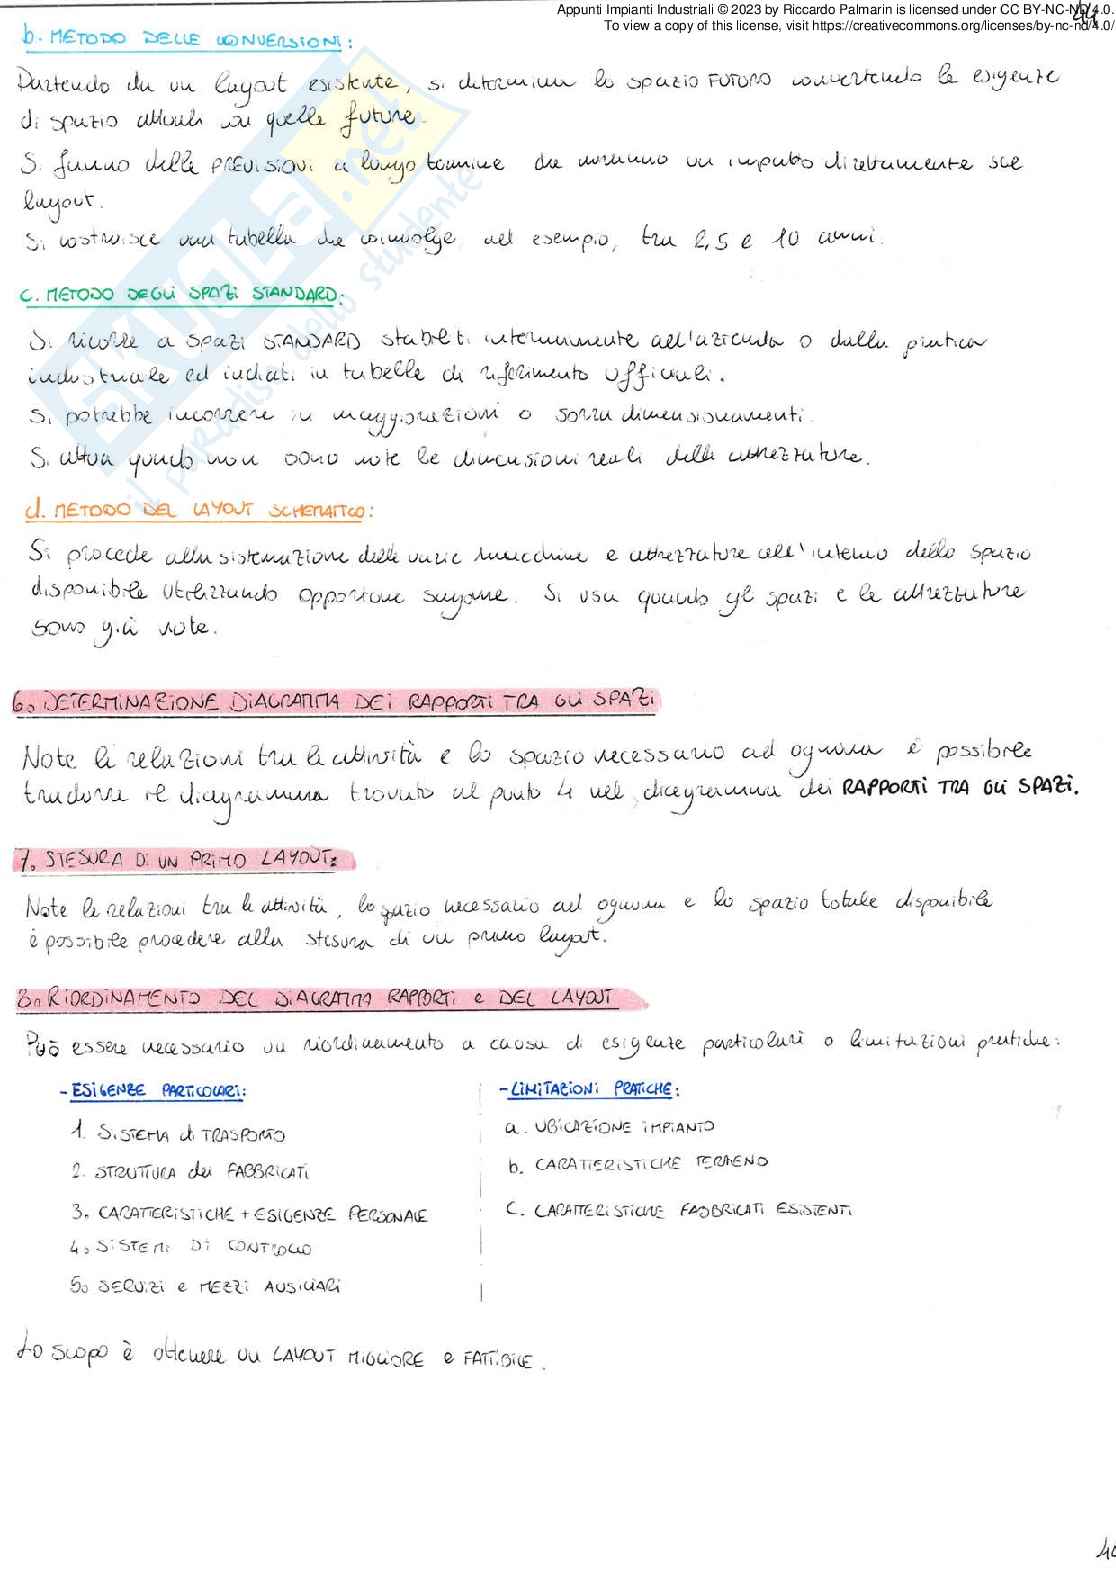 Appunti Impianti Industriali © 2023 by Riccardo Palmarin is licensed under CC BY-NC-ND 4.0.
To view a copy of this license, visit https://creativecommons.org/licenses/by-nc-nd/4.0/
b. METODO DELLE CONVERSIONI:
Partendo da un layout esistente, si determina lo spazio FUTURO convertendo le esigenze
di spazio attuali con quelle future.
Si fanno delle PREVISIONI a lungo termine che avranno un impatto direttamente sul
layout.
Si costruisce una tabella che coinvolge, ad esempio, tra 2,5 e 10 anni.
c. METODO DEGLI SPAZI STANDARD:
Si ricorre a spazi STANDARD stabiliti internamente all'azienda o dalla pratica
industriale ed indicati in tabelle di riferimento ufficiali.
Si potrebbe incorrere in maggiorazioni o sovra dimensionamenti.
Si attua quando non sono note le dimensioni reali delle attrezzature.
d. METODO DEL LAYOUT SCHEMATICO:
Si procede alla sistemazione delle varie macchine e attrezzature all'interno dello spazio
disponibile utilizzando opportune sagome. Si usa quando gli spazi e le attrezzature
sono già note.
6. DETERMINAZIONE DIAGRAMMA DEI RAPPORTI TRA GLI SPAZI
Note le relazioni tra le attività e lo spazio necessario ad ognuna è possibile
tradurre il diagramma trovato al punto 4 nel diagramma dei RAPPORTI TRA GLI SPAZI.
7. STESURA DI UN PRIMO LAYOUT:
Note le relazioni tra le attività, lo spazio necessario ad ognuna e lo spazio totale disponibile
è possibile procedere alla stesura di un primo layout.
8. RIORDINAMENTO DEL DIAGRAMMA RAPPORTI e DEL LAYOUT
Può essere necessario un riordinamento a causa di esigenze particolari o limitazioni pratiche:
- ESIGENZE PARTICOLARI:
1. SISTEMA di TRASPORTO
2. STRUTTURA dei FABBRICATI
3. CARATTERISTICHE + ESIGENZE PERSONALE
4. SISTEMI DI CONTROLLO
5. SERVIZI e MEZZI AUSILIARI
- LIMITAZIONI PRATICHE:
a. UBICAZIONE IMPIANTO
b. CARATTERISTICHE TERRENO
c. CARATTERISTICHE FABBRICATI ESISTENTI
Lo scopo è ottenere un LAYOUT MIGLIORE e FATTIBILE.
SKUOLA.net
il paradiso dello studente